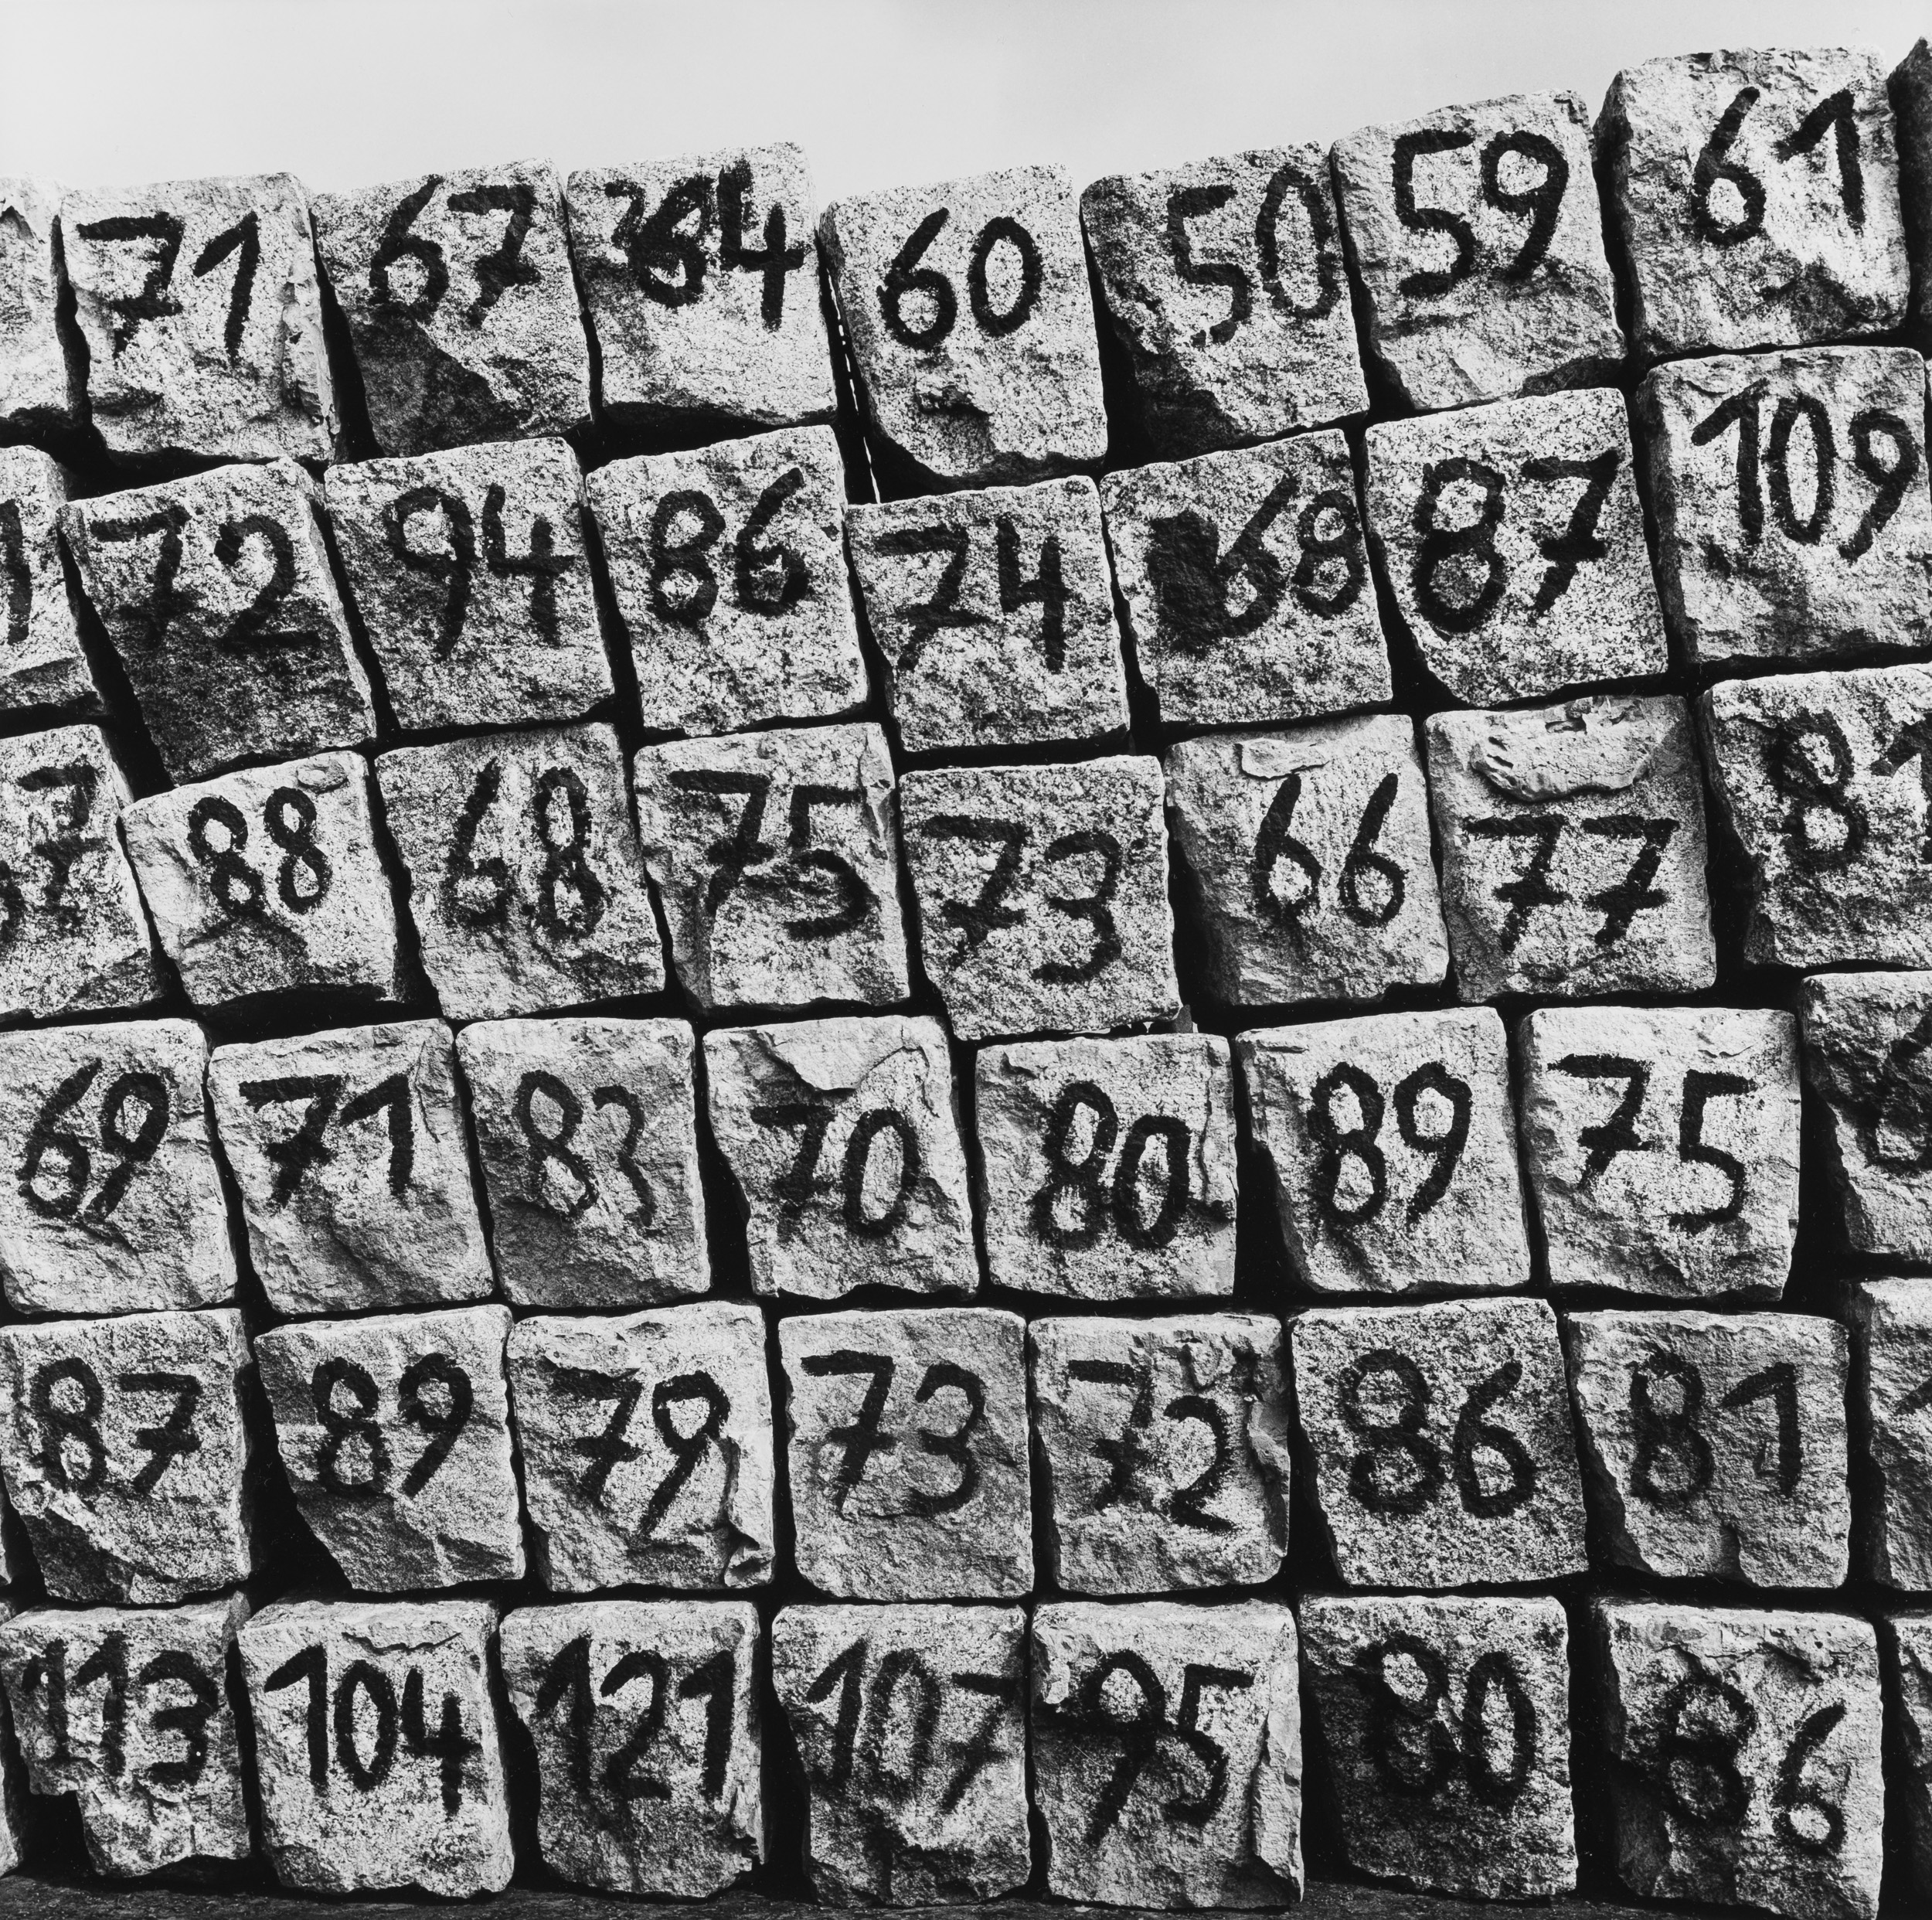 71 67 60 50 59 61
72 94 86 74 68 87 109
88 68 75 73 66 77 81
69 71 83 70 80 89 75
87 89 79 73 72 86 81
113 104 121 107 95 80 86